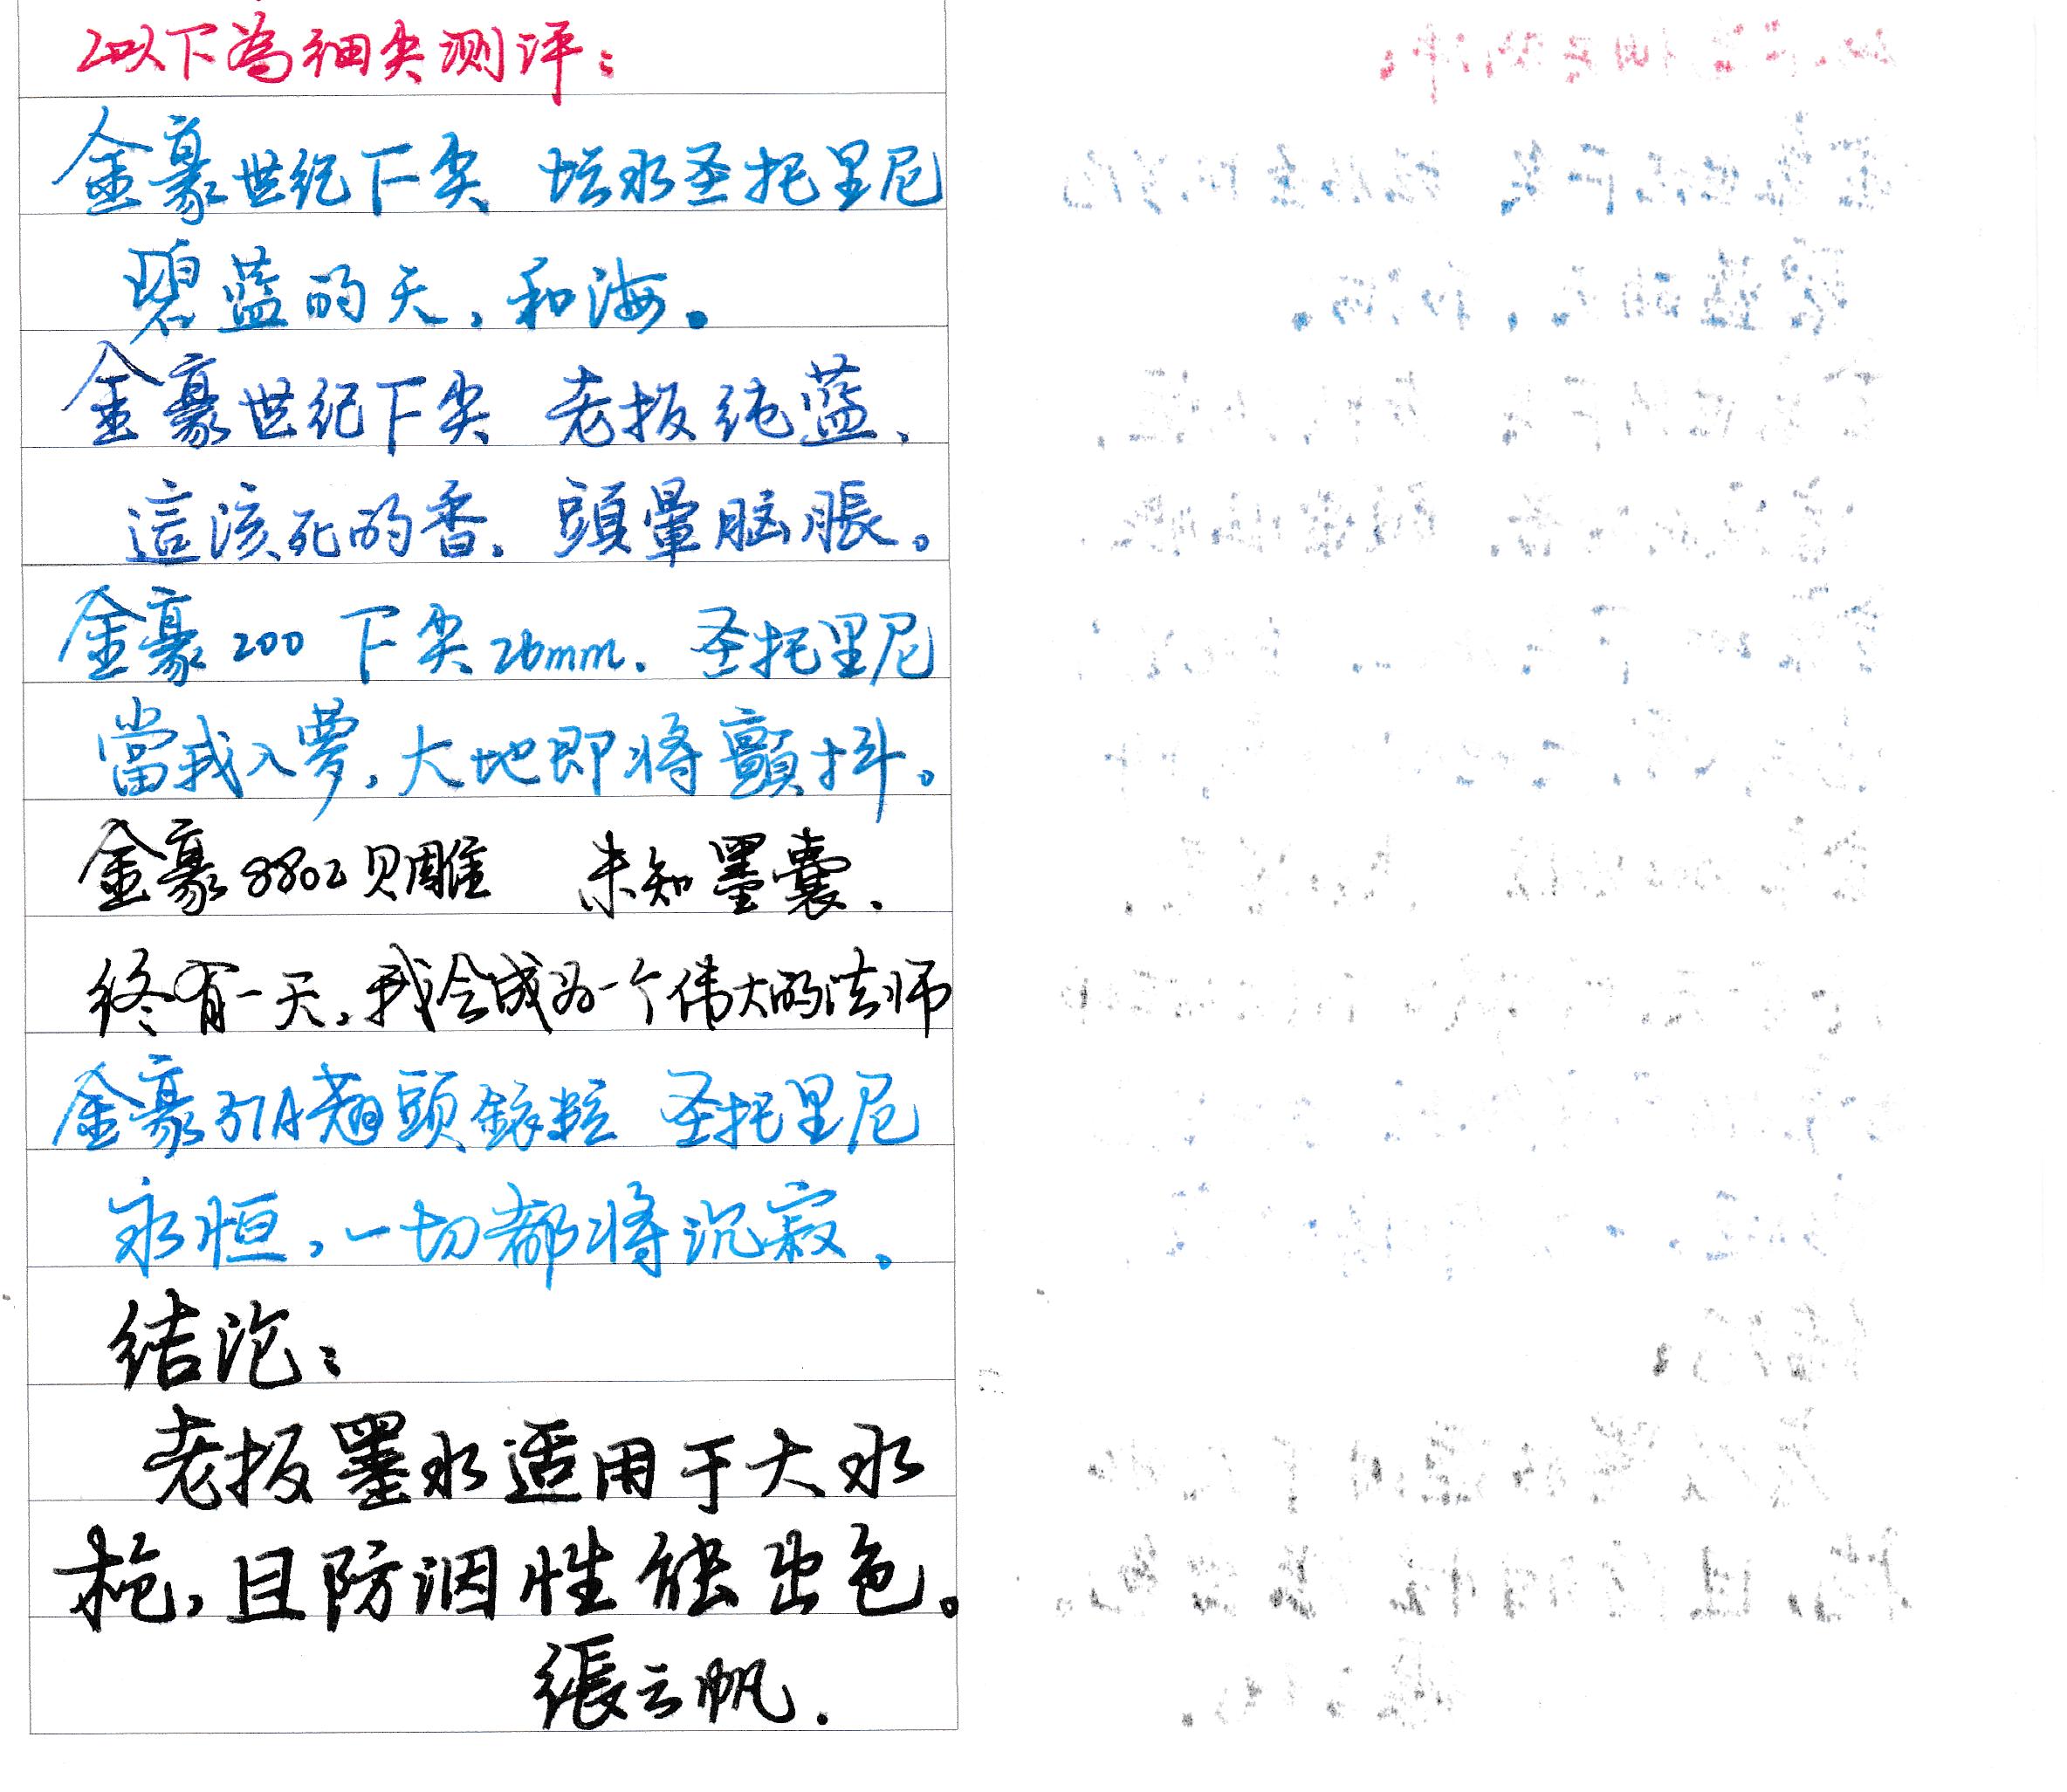 以下為细尖测评：
金豪世纪下尖 坛水圣托里尼
碧蓝的天，和海。
金豪世纪下尖 老板纯蓝，
這该死的香，頭暈脑脹。
金豪200 下尖26mm. 圣托里尼
當我入夢，大地即将顫抖。
金豪8802贝雕 未知墨囊.
终有一天，我会成为一个伟大的法师
金豪51A翘頭銥粒 圣托里尼
永恒，一切都将沉寂。
结论：
老板墨水适用于大水
枪，且防洇性能出色。
張云帆.